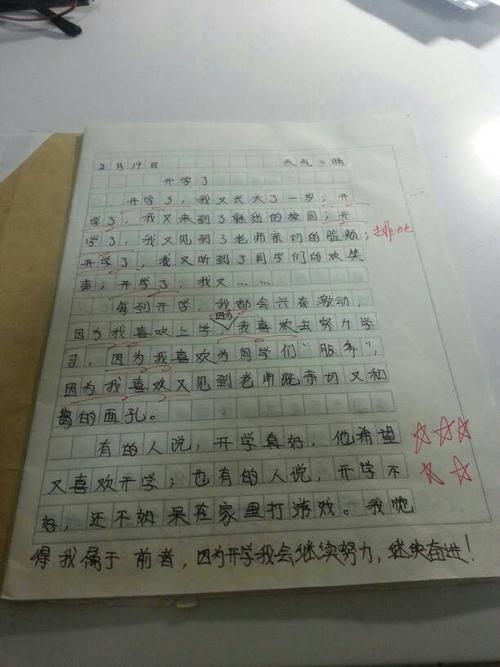 2月19日 天气：晴
开学了
开学了，我又长大了一岁；开
学了，我又来到了熟悉的校园；开
学了，我又见到了老师亲切的脸颊；排比
开学了，我又听到了同学们的欢笑
声；开学了，我又……
每到开学，我都会兴奋激动，
因为我喜欢上学，因为我喜欢去努力学
习，因为我喜欢为同学们“服务”，
因为我喜欢又见到老师既亲切又和
蔼的面孔。
有的人说，开学真好，他希望
又喜欢开学；也有的人说，开学不
好，还不如呆在家里打游戏。我觉
得我属于前者，因为开学我会继续努力，继续奋进！